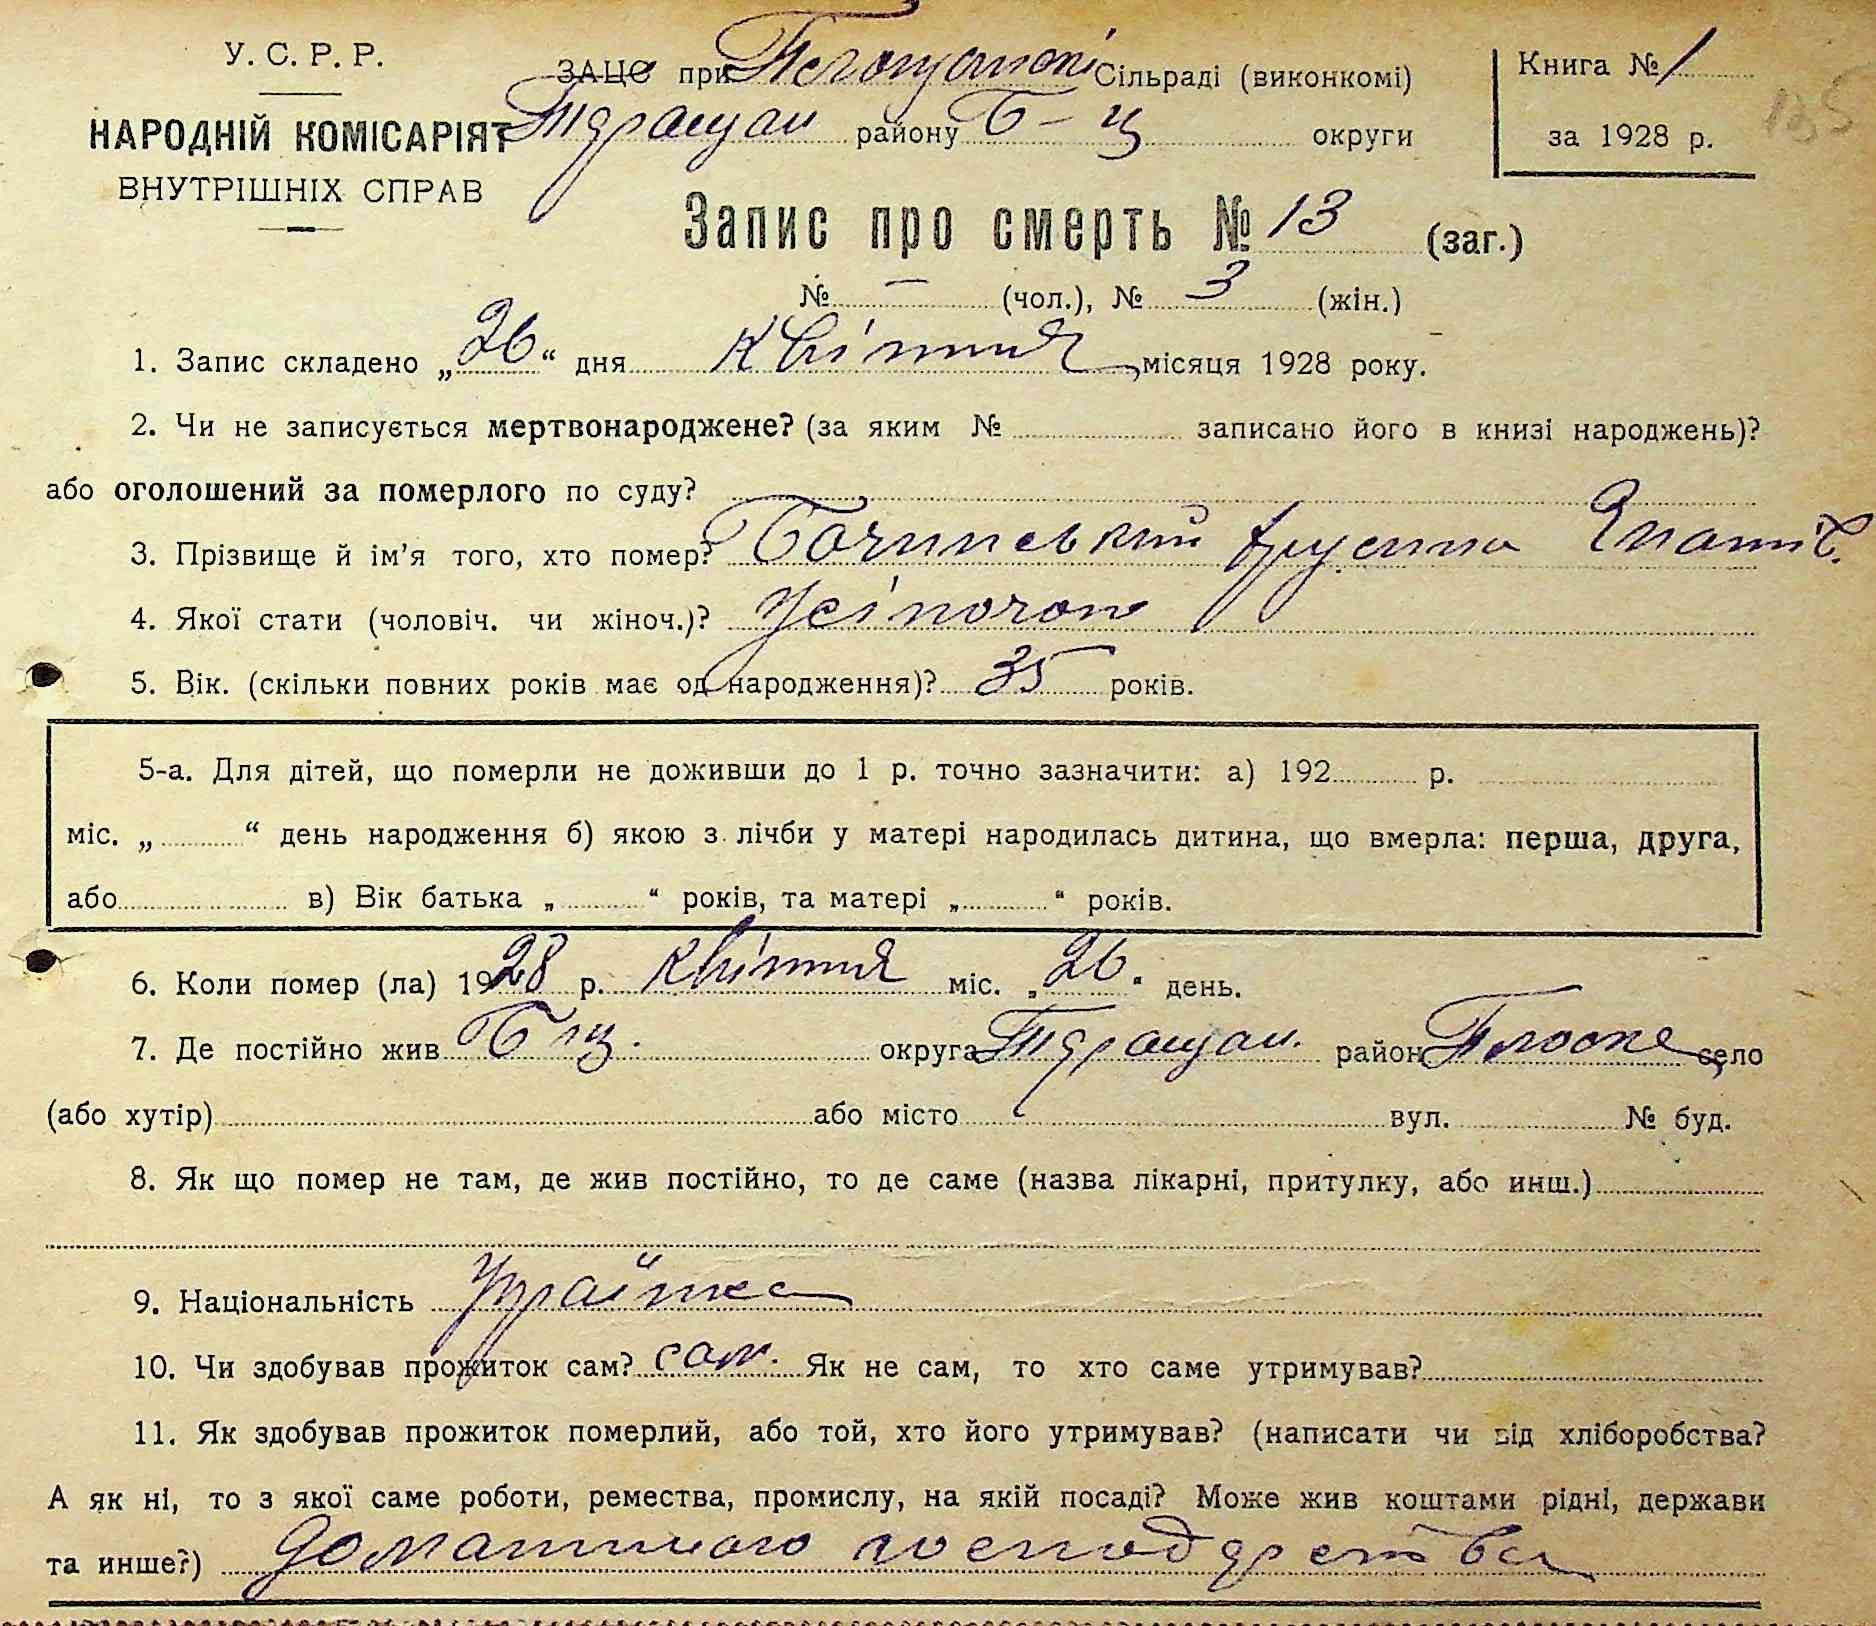 У. С. Р. Р.
НАРОДНІЙ КОМІСАРІЯТ
ВНУТРІШНІХ СПРАВ
ЗАЦС при Сільраді (виконкомі)
Тдращан району Б-Ц округи
Книга № 1
за 1928 р.
135
Запис про смерть № 13 (заг.)
№ — (чол.), № 3 (жін.)
1. Запис складено „26“ дня Квітння місяця 1928 року.
2. Чи не записується мертвонароджене? (за яким № записано його в книзі народжень)?
або оголошений за померлого по суду?
3. Прізвище й ім’я того, хто помер?
4. Якої стати (чоловіч. чи жіноч.)? Жіночого
5. Вік. (скільки повних років має од народження)? 35 років.
5-а. Для дітей, що померли не доживши до 1 р. точно зазначити: а) 192 р.
міс. „ “ день народження б) якою з лічби у матері народилась дитина, що вмерла: перша, друга,
або в) Вік батька „ “ років, та матері „ “ років.
6. Коли помер (ла) 1928 р. квітння міс. „26“ день.
7. Де постійно жив Б Ц. округа Тдращан. район Плоске село
(або хутір) або місто вул. № буд.
8. Як що помер не там, де жив постійно, то де саме (назва лікарні, притулку, або инш.)
9. Національність Україтка
10. Чи здобував прожиток сам? сам. Як не сам, то хто саме утримував?
11. Як здобував прожиток померлий, або той, хто його утримував? (написати чи від хліборобства?
А як ні, то з якої саме роботи, ремества, промислу, на якій посаді? Може жив коштами рідні, держави
та инше?) Доматнього господдрства